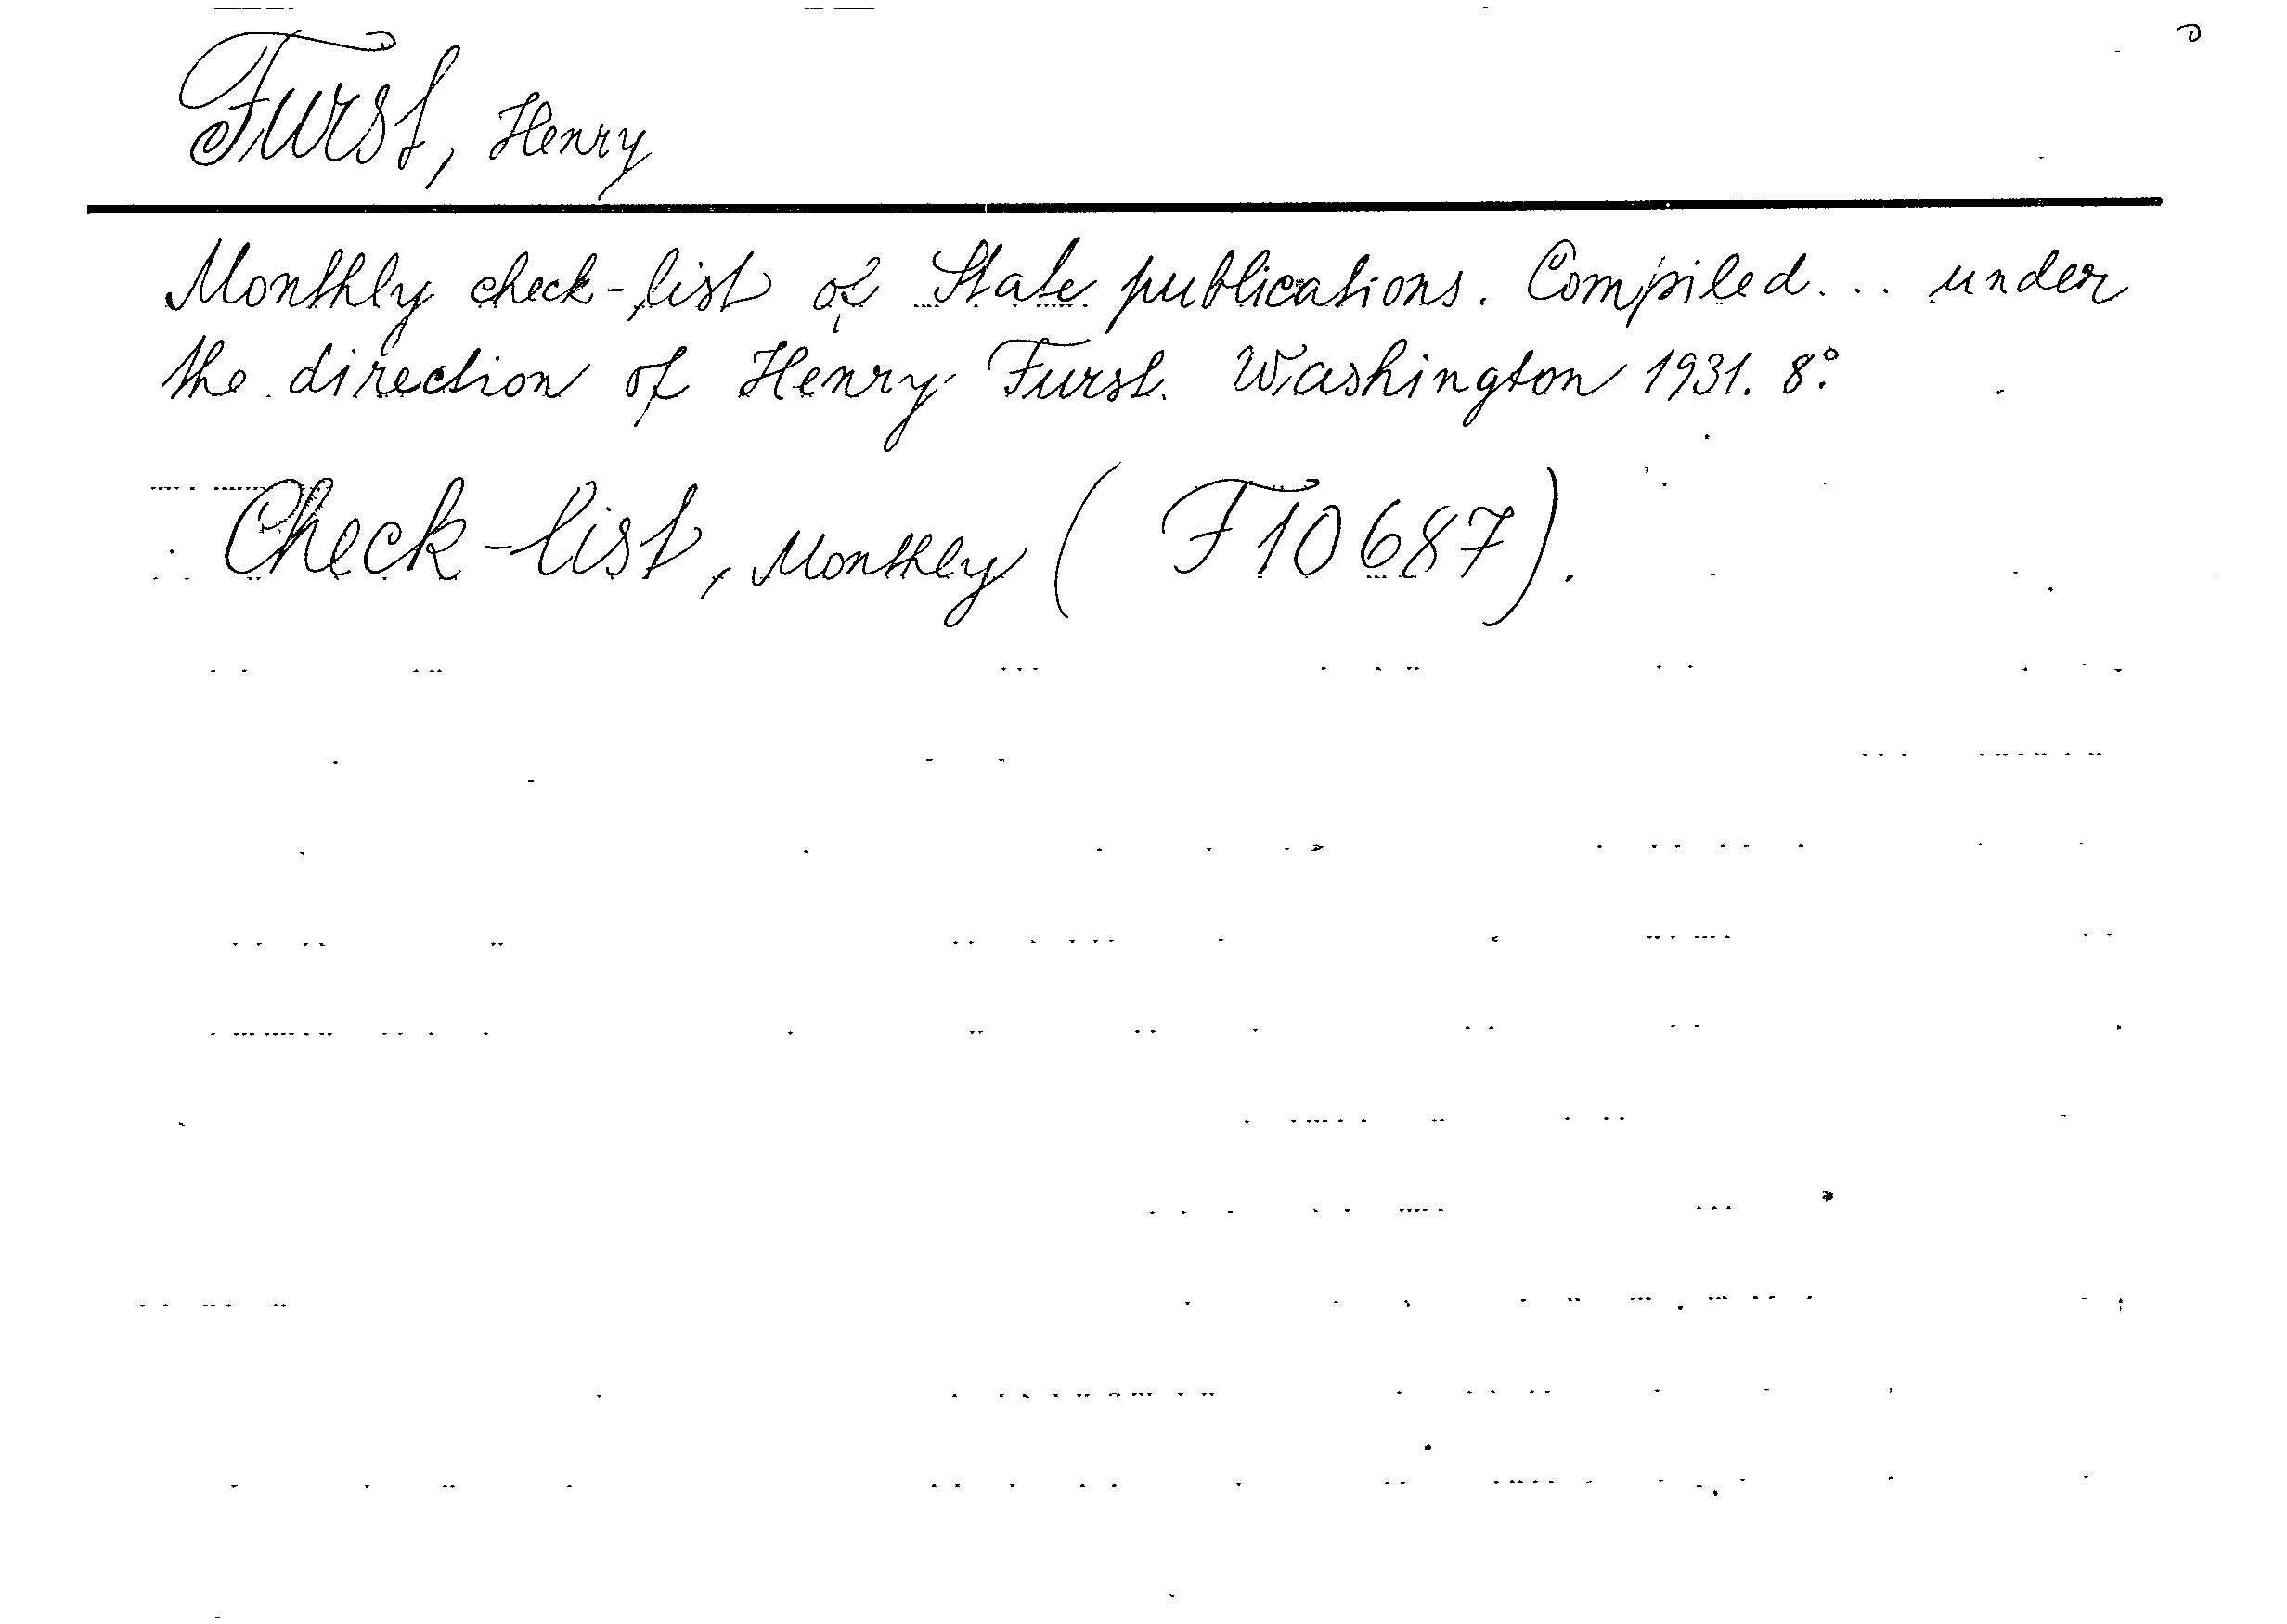 Furst, Henry
Monthly check-list of State publications. Compiled... under
the direction of Henry Furst. Washington 1931. 8°.
Check-list, Monthly (F10687).